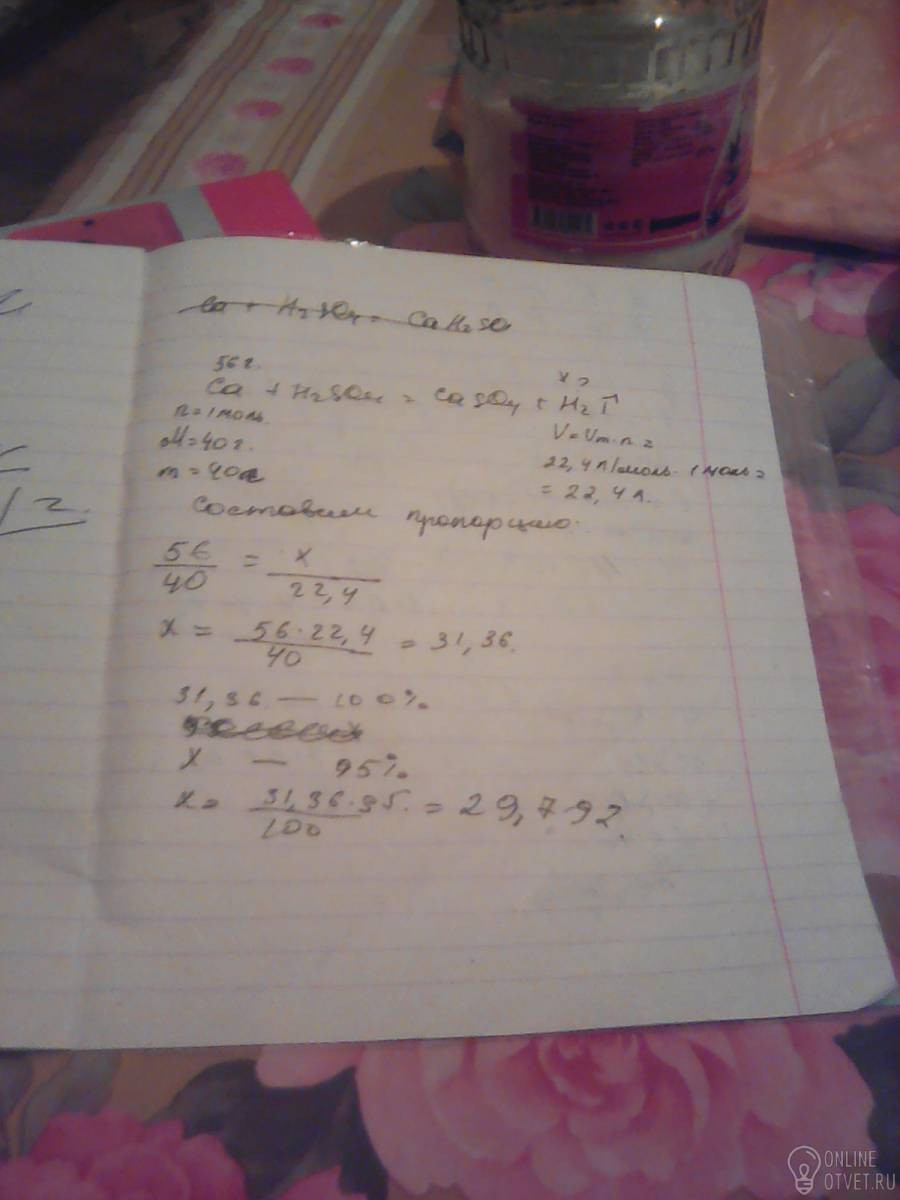 Ca + H₂SO₄ = CaH₂SO
56 г.
x л
Ca + H₂SO₄ = CaSO₄ + H₂↑
n = 1 моль.
M = 40 г.
m = 40 г
V = Vm·n =
22,4 л/моль · 1 моль =
= 22,4 л.
Составим пропорцию:
56/40 = x/22,4
x = 56·22,4/40 = 31,36.
31,36 — 100%.
x — 95%.
x = 31,36·95/100 = 29,792.
2.
ONLINE
OTVET.RU